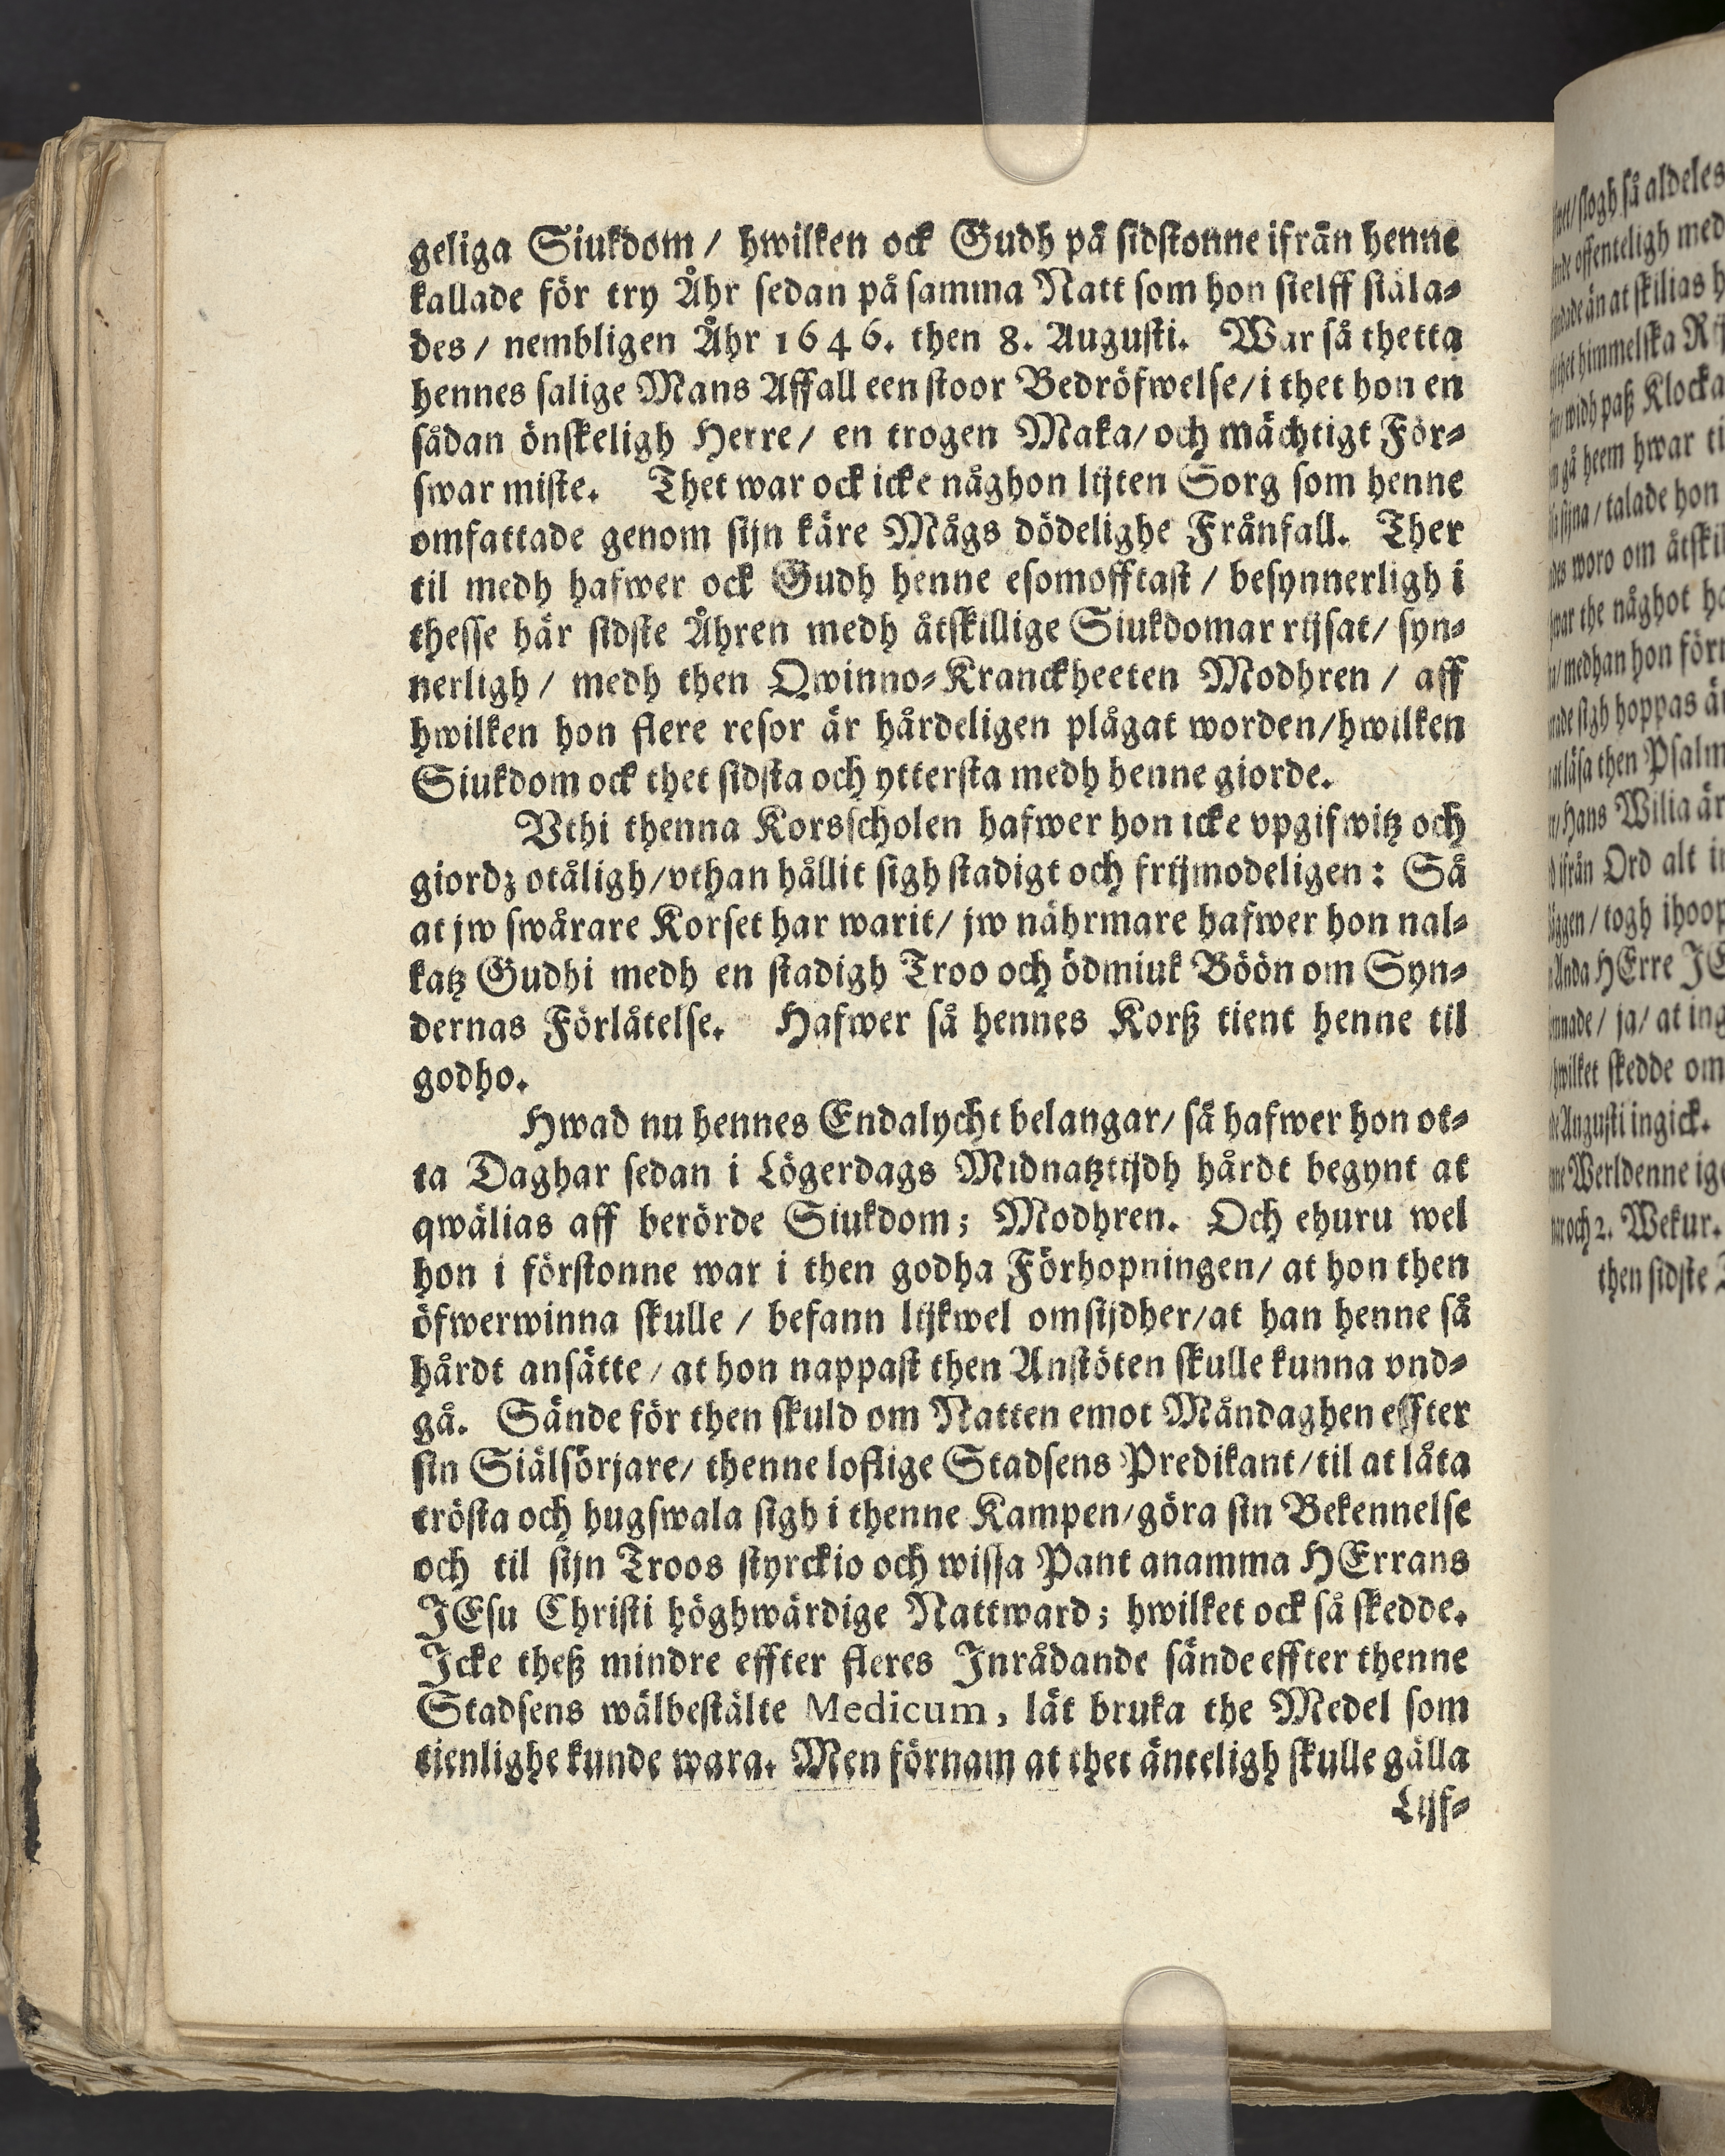 geliga Siukdom / hwilken ock Gudh på sidstonne ifrån henne
kallade för try Åhr sedan på samma Natt som hon sielff siäla⸗
des / nembligen Åhr 1646. then 8. Augusti. War så thetta
hennes salige Mans Affall een stoor Bedröfwelse / i thet hon en
sådan önskeligh Herre / en trogen Maka / och mächtigt För⸗
swar miste. Thet war ock icke någhon lijten Sorg som henne
omfattade genom sijn käre Mågs dödelighe Frånfall. Ther
til medh hafwer ock Gudh henne esomofftast / besynnerligh i
thesse här sidste Åhren medh åtskillige Siukdomar rijsat / syn⸗
nerligh / medh then Qwinno⸗Kranckheeten Modhren / aff
hwilken hon flere resor är hårdeligen plågat worden / hwilken
Siukdom ock thet sidsta och yttersta medh henne giorde.
Vthi thenna Korsscholen hafwer hon icke vpgifwitz och
giordz otåligh / vthan hållit sigh stadigt och frijmodeligen: Så
at jw swårare Korset har warit / jw nährmare hafwer hon nal⸗
katz Gudhi medh en stadigh Troo och ödmiuk Böön om Syn⸗
dernas Förlåtelse. Hafwer så hennes Korß tient henne til
godho.
Hwad nu hennes Endalycht belangar / så hafwer hon ot⸗
ta Daghar sedan i Lögerdags Midnatztijdh hårdt begynt at
qwälias aff berörde Siukdom; Modhren. Och ehuru wel
hon i förstonne war i then godha Förhopningen / at hon then
öfwerwinna skulle / befann lijkwel omsijdher / at han henne så
hårdt ansätte / at hon nappast then Anstöten skulle kunna vnd⸗
gå. Sände för then skuld om Natten emot Måndaghen effter
sin Siälsörjare / thenne loflige Stadsens Predikant / til at låta
trösta och hugswala sigh i thenne Kampen / göra sin Bekennelse
och til sijn Troos styrckio och wissa Pant anamma HErrans
JEsu Christi höghwärdige Nattward; hwilket ock så skedde.
Icke theß mindre effter fleres Inrådande sände effter thenne
Stadsens wälbestälte Medicum, lät bruka the Medel som
tienlighe kunde wara. Men förnam at thet änteligh skulle gälla
Lijf⸗
så aldeles
offenteligh med
än at skilias
himmelska
widh paß Klocka
gå heem hwar
sijna / talade hon
woro om åtskil
the någhot
medhan hon
sigh hoppas
läsa then Psalm
Hans Wilia är
ifrån Ord alt
togh ihoop
Anda HErre
ja / at
hwilket skedde om
Augusti ingick.
Werldenne
och 2. Wekur.
then sidste